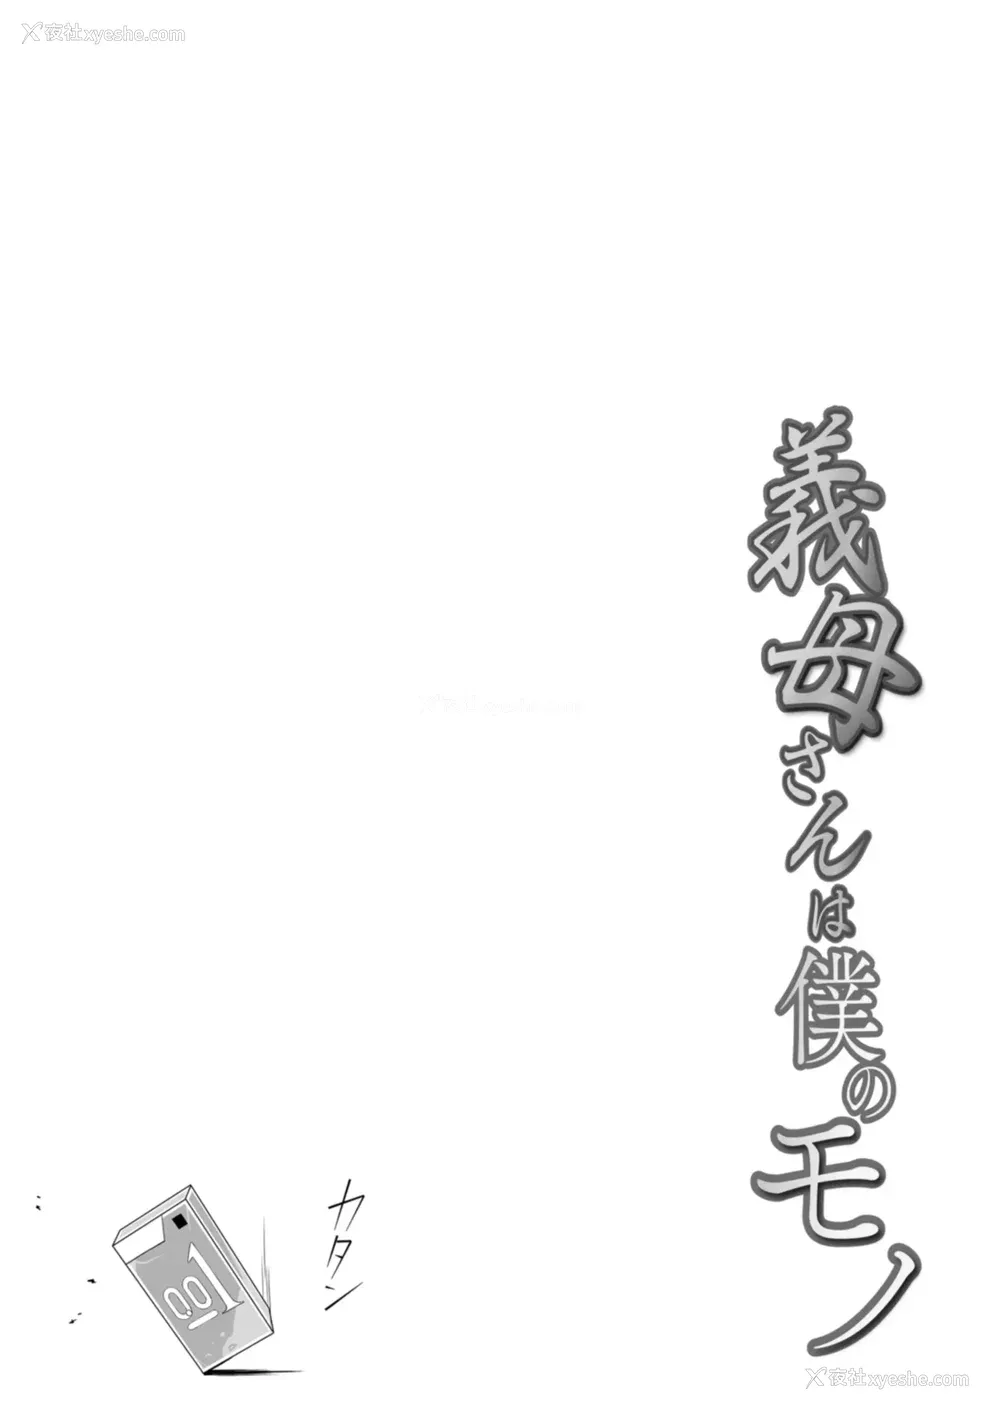 夜社xyeshe.com
義母さんは僕のモノ
カタン
0.01
夜社xyeshe.com